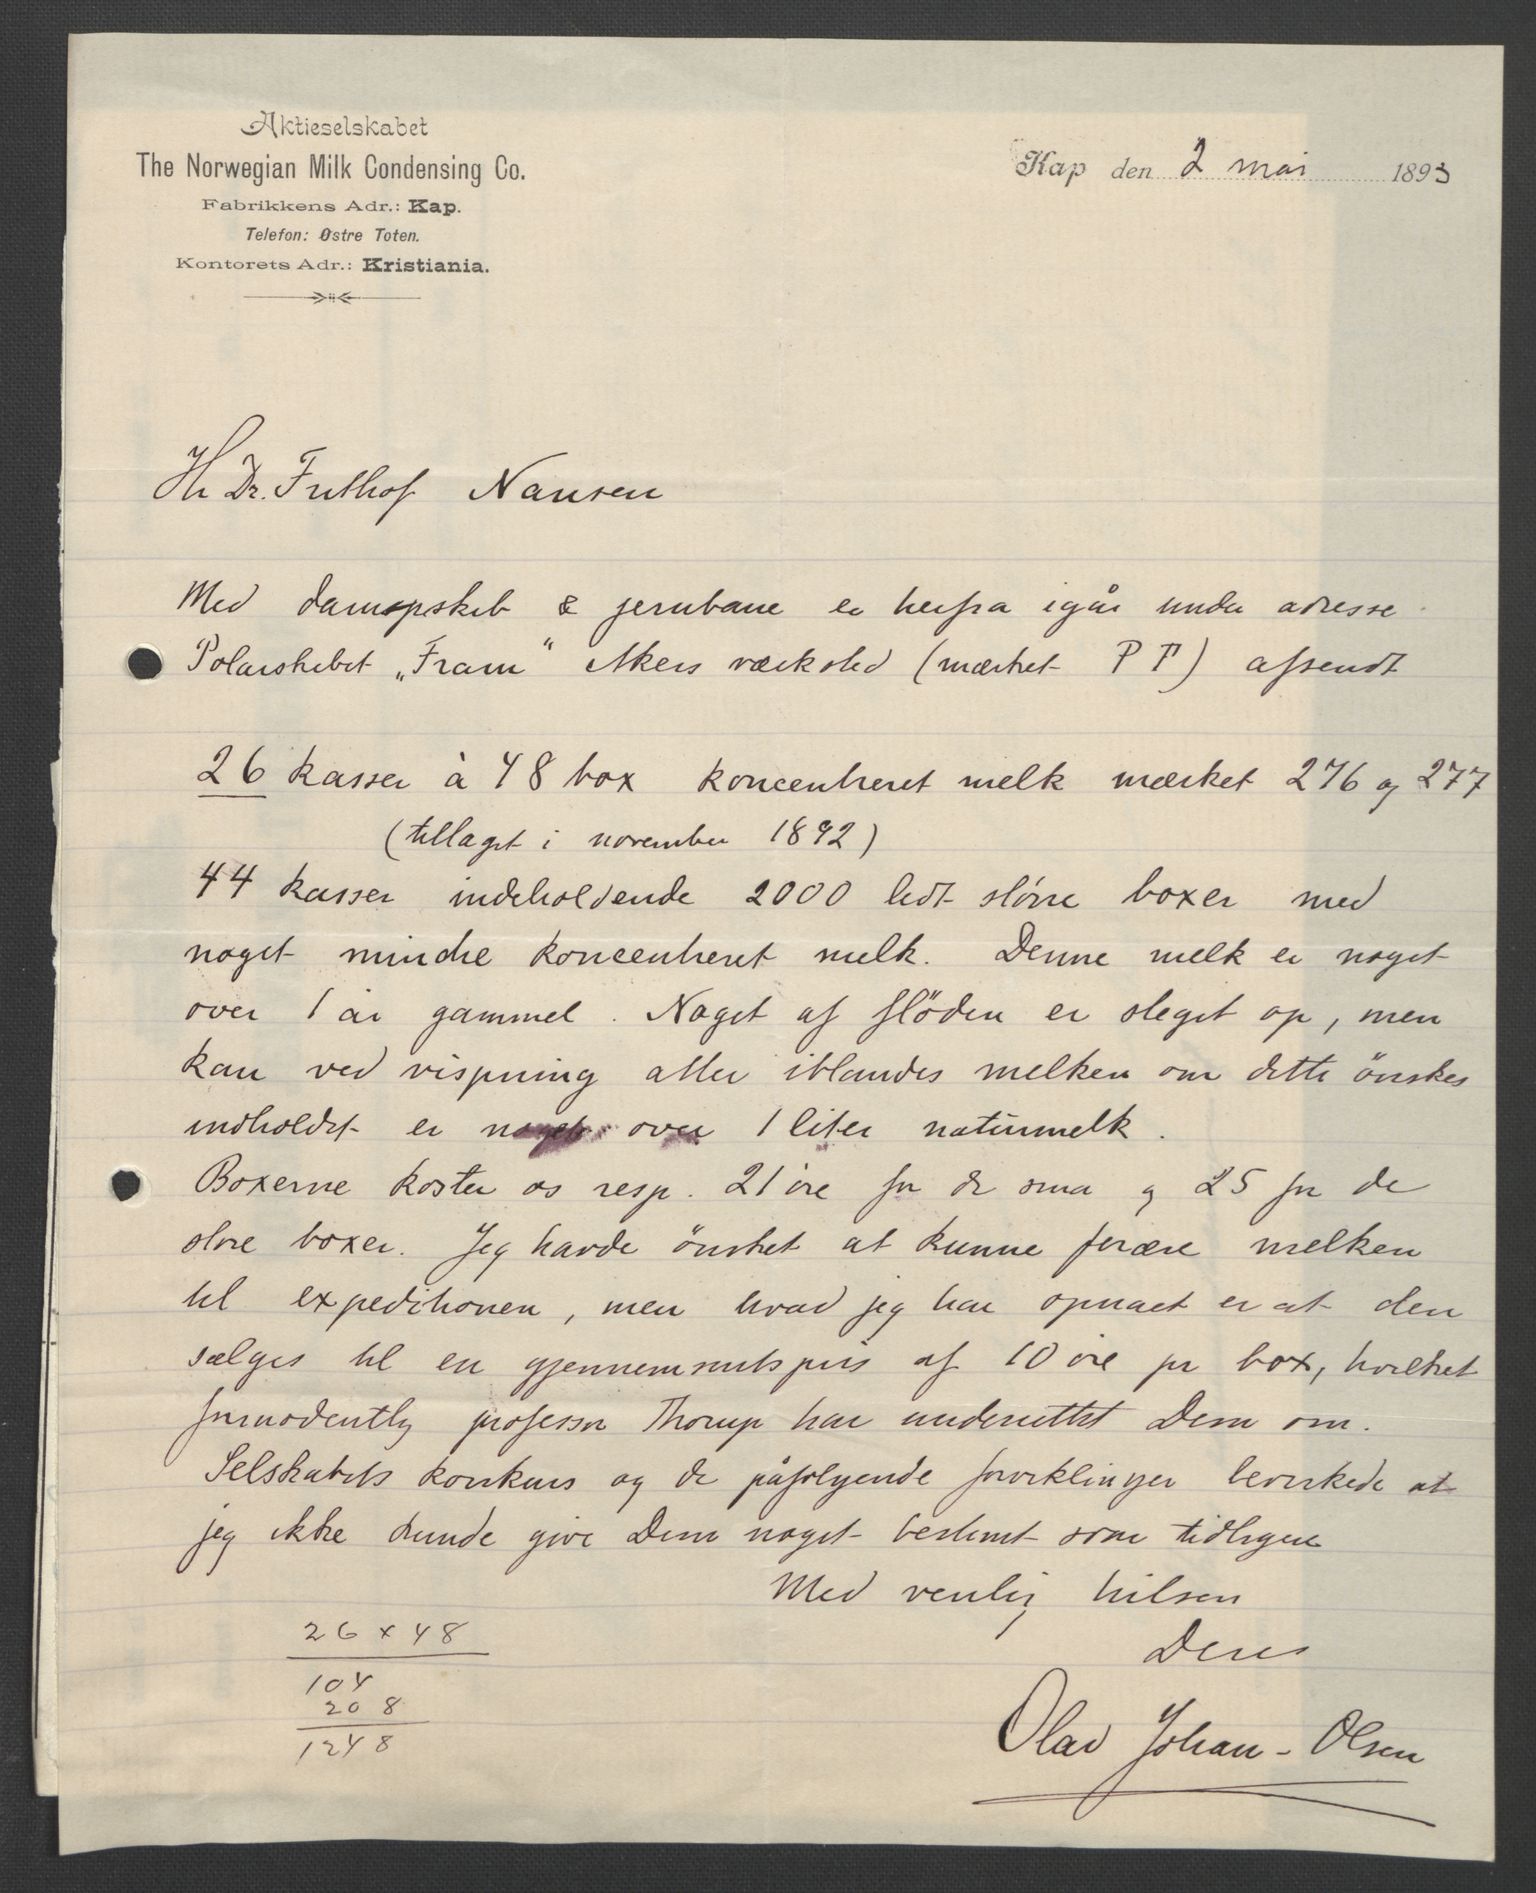 Aktieselskabet
The Norwegian Milk Condensing Co.
Fabrikkens Adr.: Kap.
Telefon: Østre Toten.
Kontorets Adr.: Kristiania.
Kap den 2 mai 1893
Hr Dr. Frithof Nansen
Med dampskib & jernbane er herfra igår under adresse
Polarskibet „Fram" Akers værksted (mærket P P) afsendt
26 kasser à 48 box koncentreret melk mærket 276 og 277
(tillaget i november 1892)
44 kasser indeholdende 2000 lidt större boxer med
noget mindre koncentreret melk. Denne melk er noget
over 1 år gammel. Noget af flöden er sleget op, men
kan ved vispning atter iblandes melken om dette önskes
indholdet er noget over 1 liter naturmelk.
Boxerne koster os resp. 21 öre for de små og 25 for de
store boxer. Jeg havde önsket at kunne forære melken
til expeditionen, men hvad jeg har opnaet er at den
sælges til en gjennemsnitspris af 10 öre pr box, hvilket
formodentlig professor Thorup har underrettet Dem om.
Selskabets konkurs og de påfølgende forviklinger bevirkede at
jeg ikke kunde give Dem noget bestemt svar tidligere
Med venlig hilsen
Deres
Olav Johan-Olsen
26 x 48
104
208
1248